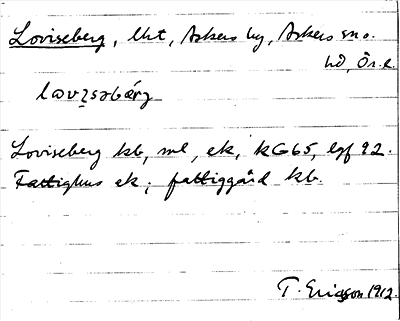 Loviseberg, lht, Askers by, Askers sn o.
hd, Ör. l.
lovɪsəbárj
Loviseberg kb, ml, ek, kG65, lgf 92.
Fattighus ek; fattiggård kb.
T. Ericsson 1912.